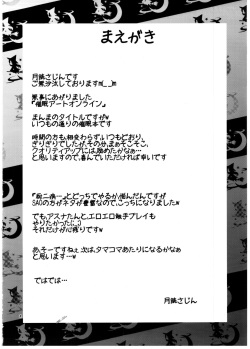 まえがき
月桃さじんです
ご無沙汰しておりますm(_ _)m
無事にあがりました
『催眠アートオンライン』
まんまのタイトルですがw
いつもの通りの催眠本です
時間の方も、相変わらず、いつもどおり、
ぎりぎりでしたが、その分、まあまあ、
クオリティアップには
と思いますので、喜んでいただければ幸いです
とどっちでやるか、悩んだんですが
SAOの方がネタが豊富なので、こっちになりましたw
でも、アスナたんと、エロエロ触手プレイも
やりたかった(;_;)
それだけが心残りですw
あ、そーですねぇ 次は、タマコマあたりになるかなぁ
と思います…w
ではでは…
月桃さじん